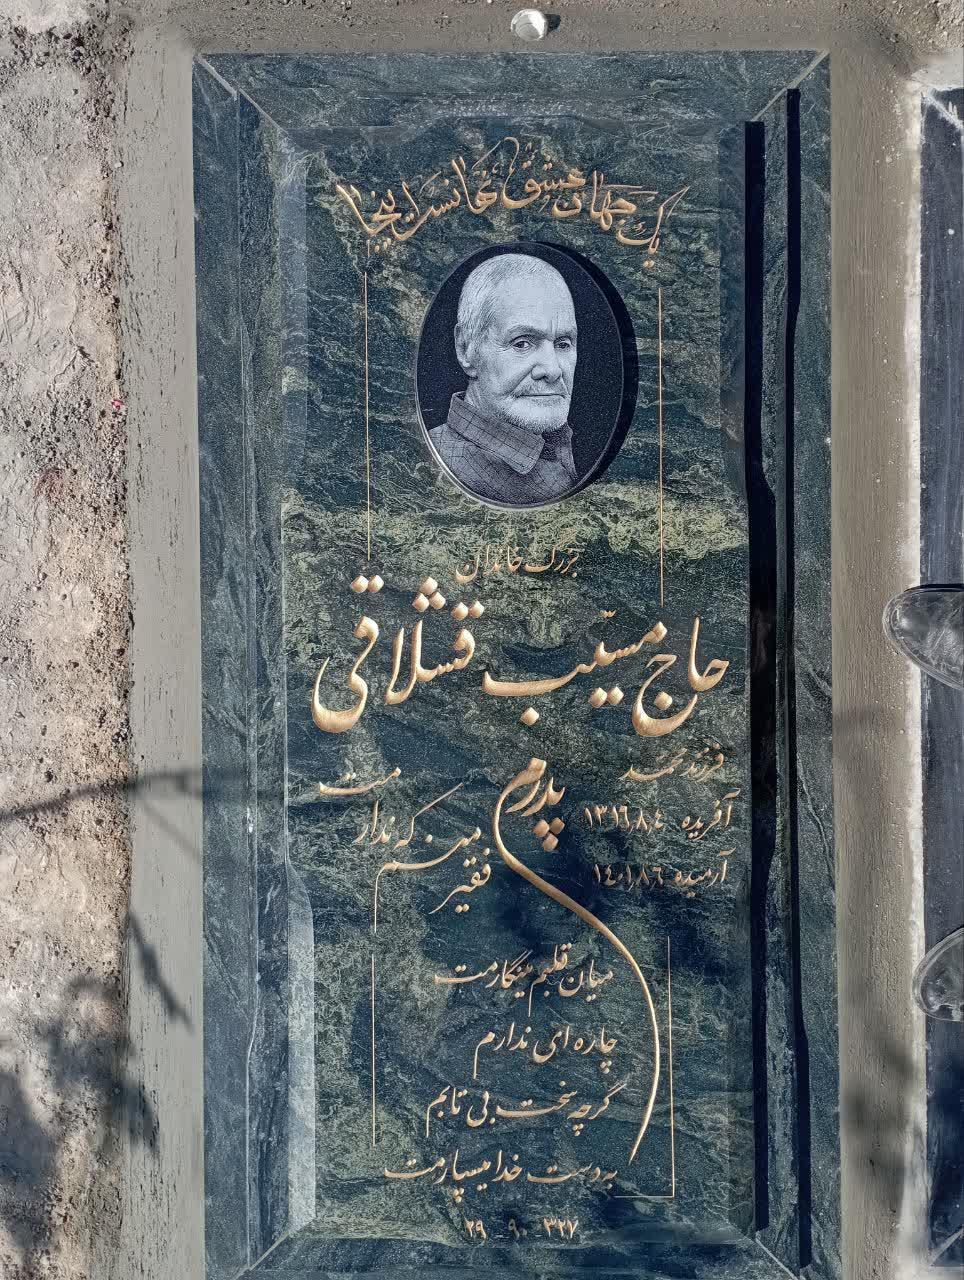 یک جهان عشق نهانست اینجا
بزرگ خاندان
حاج مسیّب قشلاقی
فرزند محمد
آفریده ۱۳۱۶٫۸٫۴
آرمیده ۱۴۰۱٫۸٫۶
پدرم
منم که ندارمت
فقیر
میان قلبم مینگارمت
چاره ای ندارم
گرچه سخت بی تابم
به دست خدا میسپارمت
۲۹ - ۹۰ - ۳۲۷